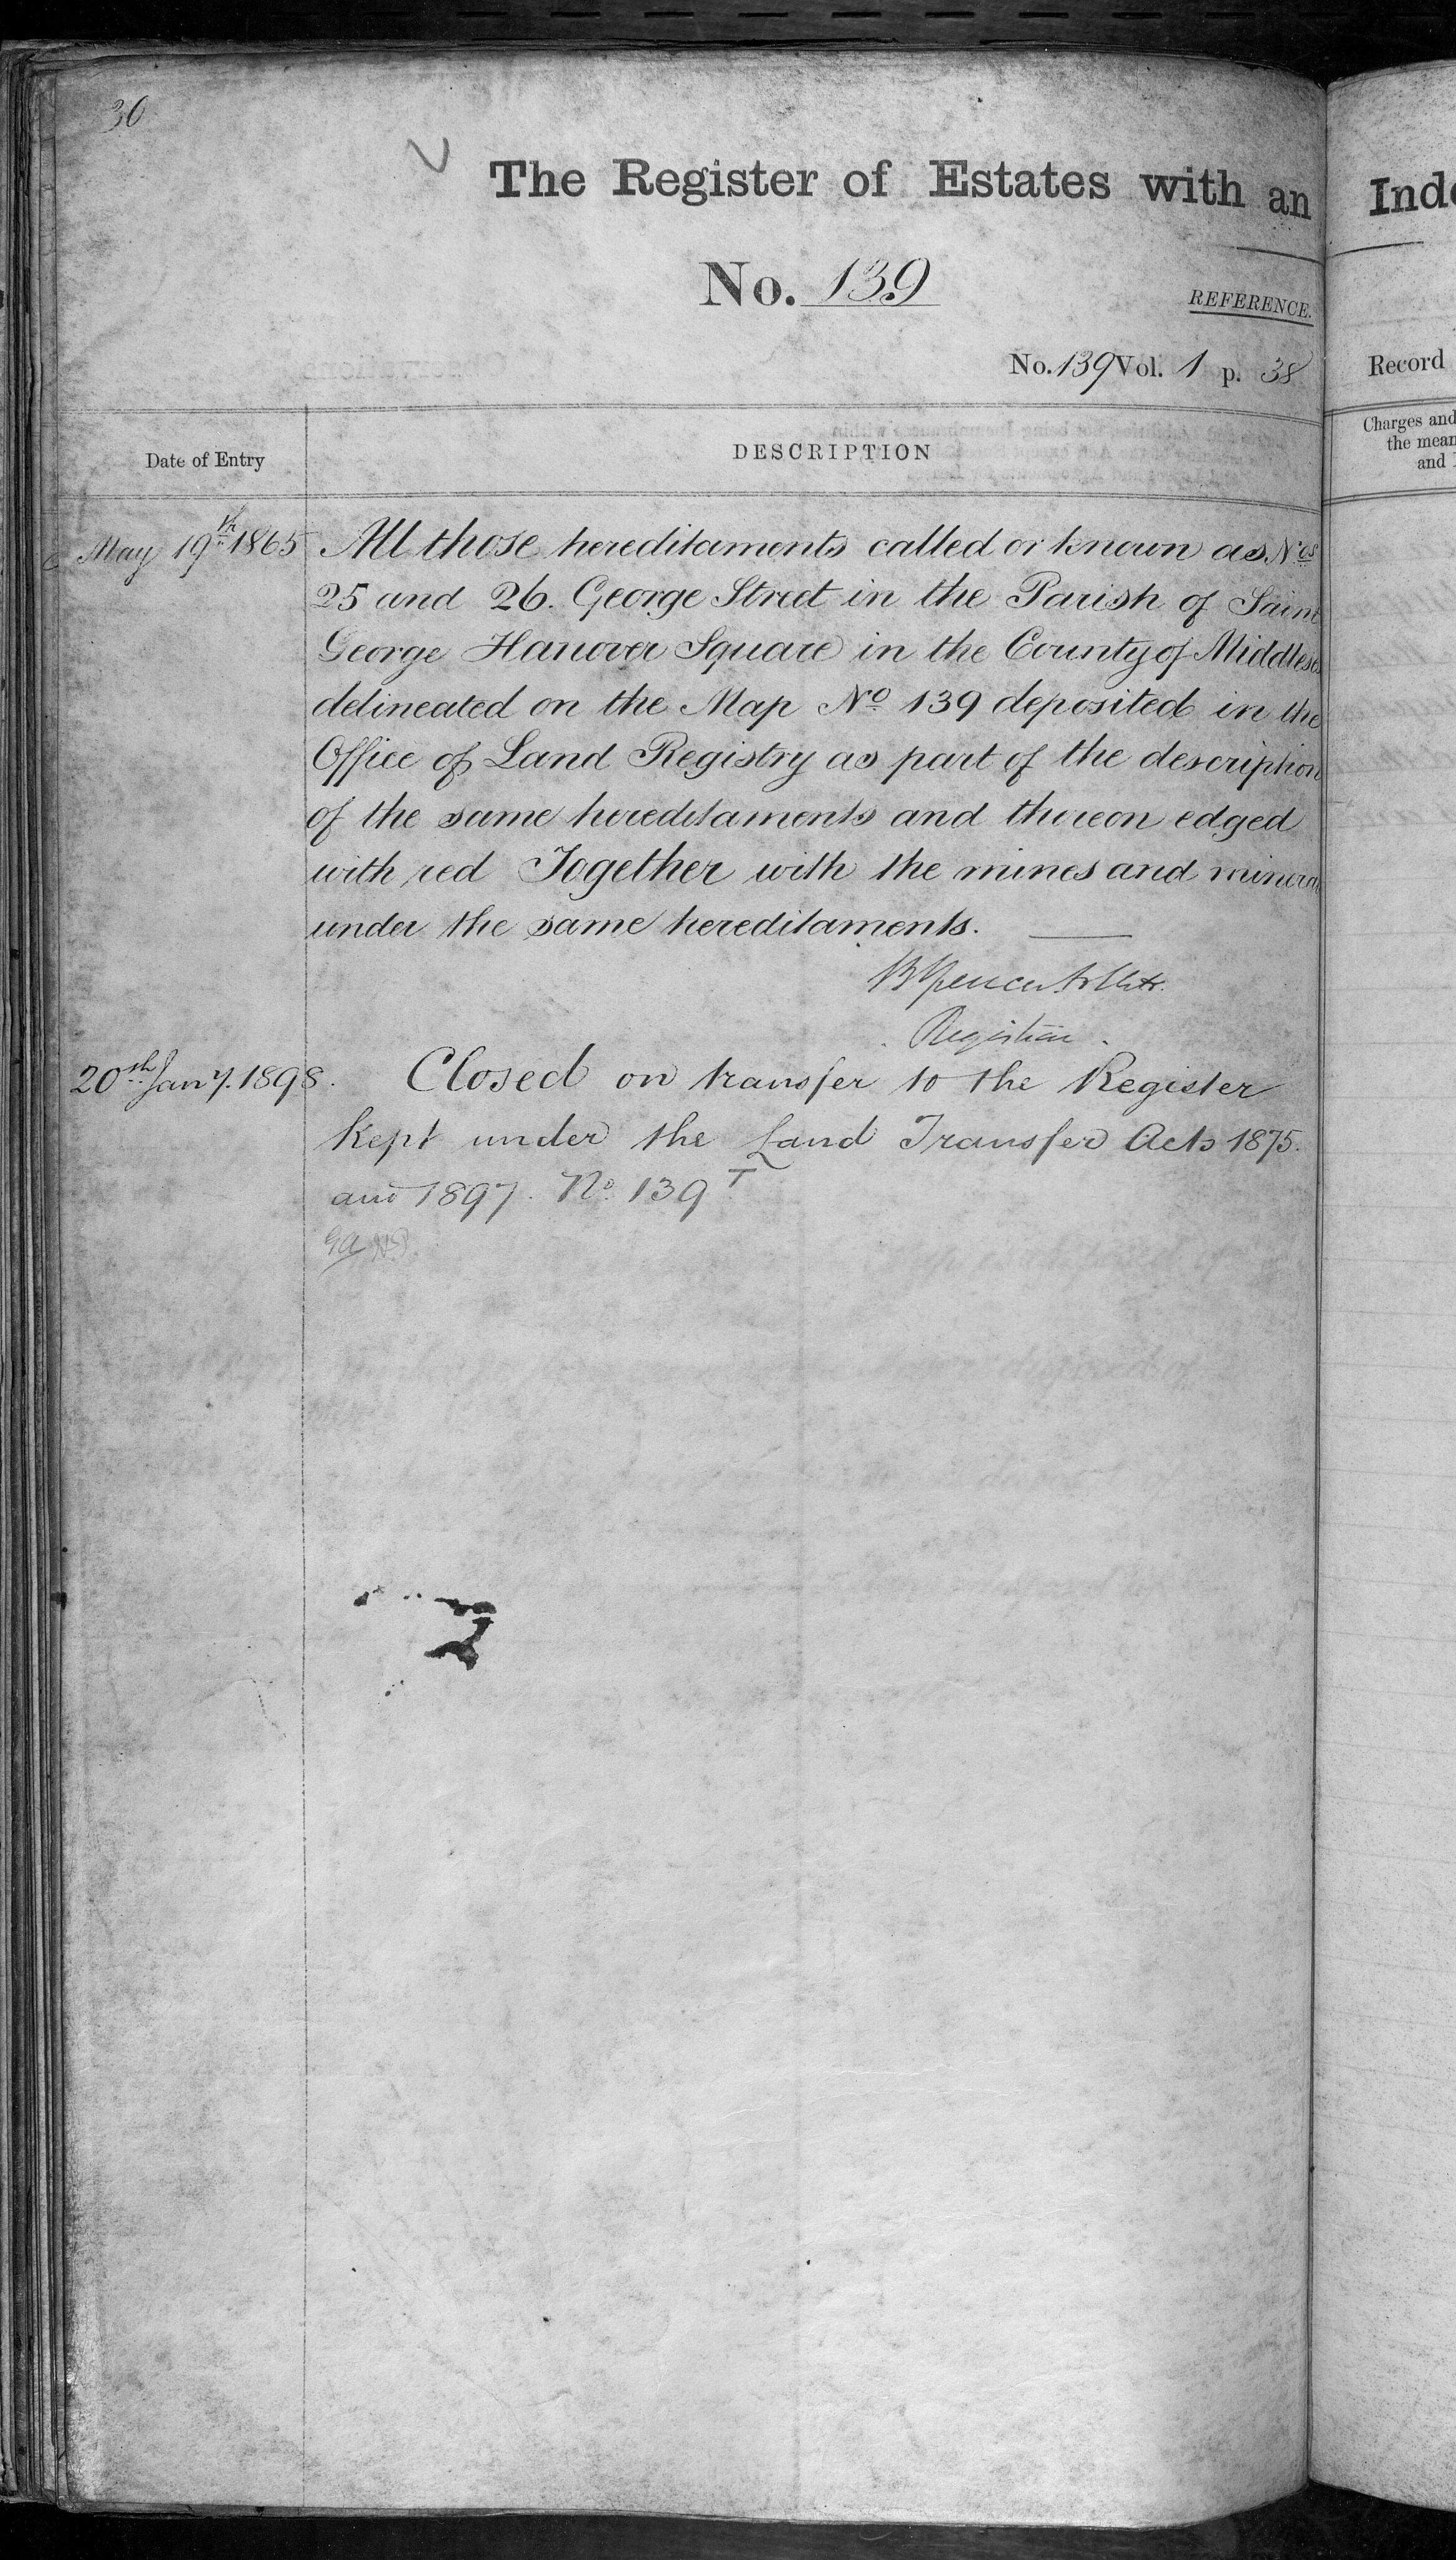 30
The Register of Estates with an
Inde
No. 139
REFERENCE.
No. 139 Vol. 1 p. 38
Record
Date of Entry
DESCRIPTION
Charges and
the mean
and
May 19th 1865
All those hereditaments called or known as Nos
25 and 26. George Street in the Parish of Saint
George Hanover Square in the County of Middlesex
delineated on the Map No 139 deposited in the
Office of Land Registry as part of the description
of the same hereditaments and thereon edged
with red Together with the mines and mineral
under the same hereditaments.
Registrar.
20th Jany. 1898.
Closed on transfer to the Register
kept under the Land Transfer Acts 1875.
and 1897. No. 139 T